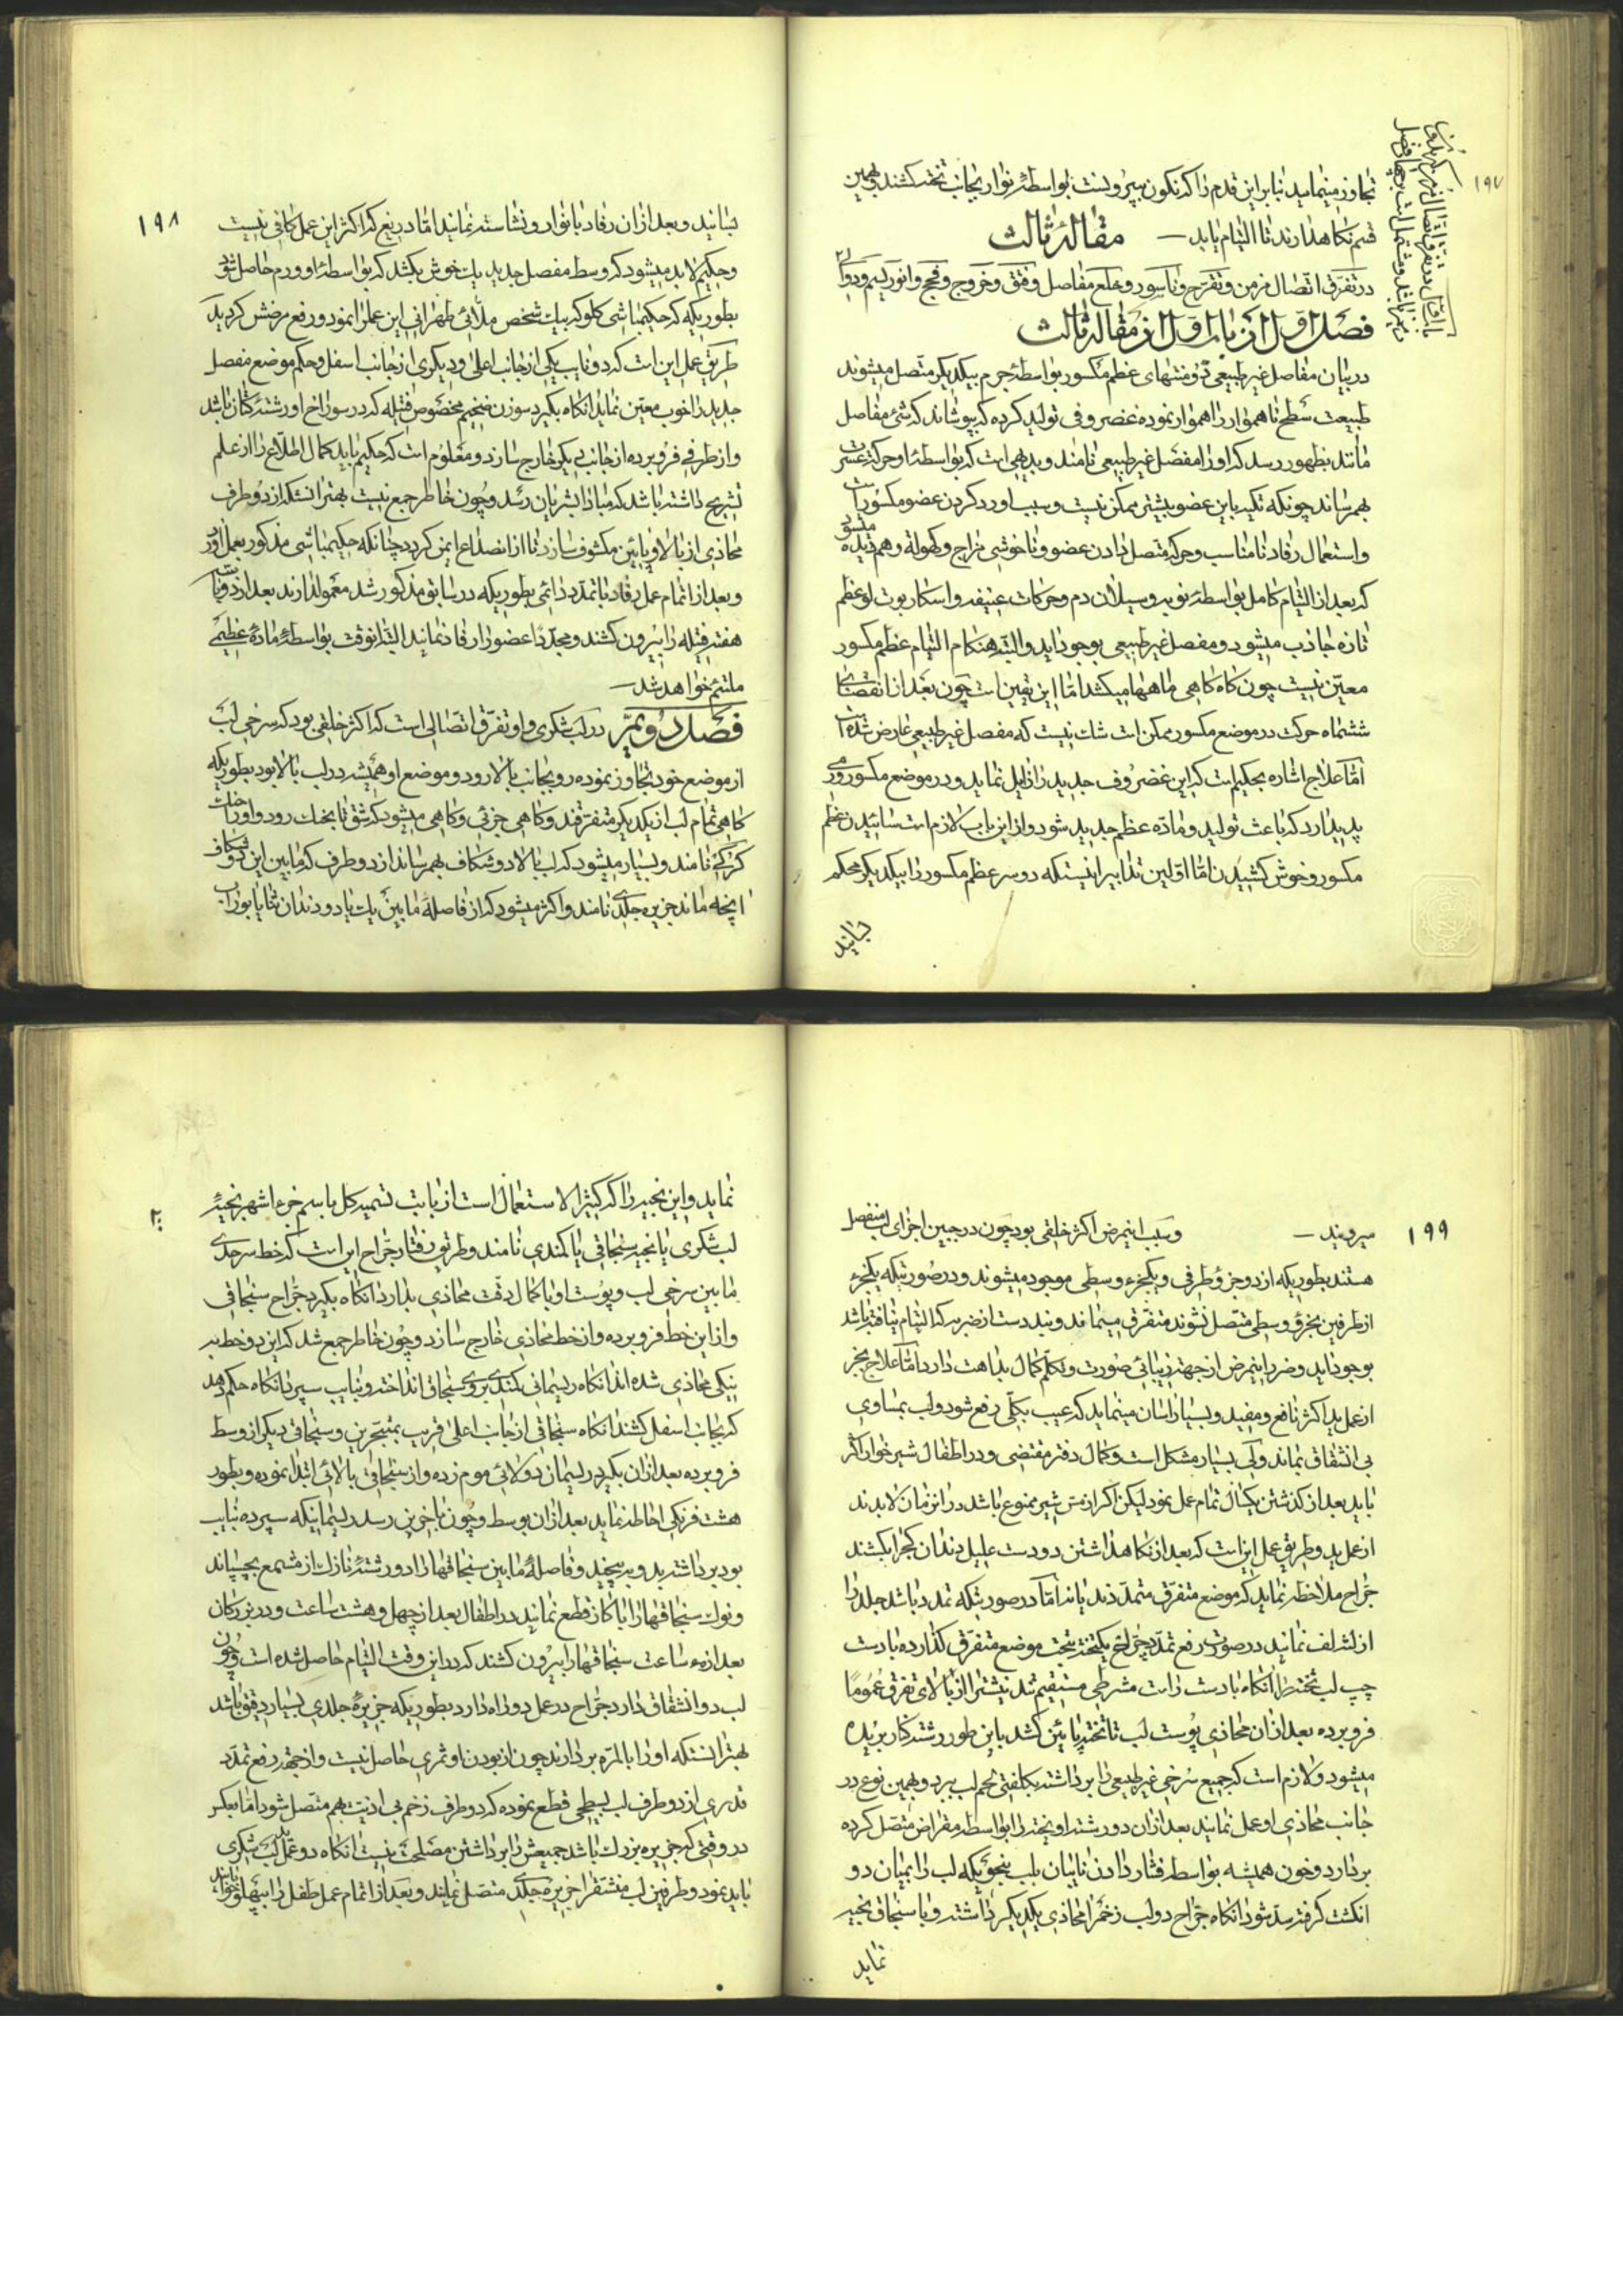 ۱۹۷
تجاوز مینماید بنابراین قدم را که نکون بیرونست بواسطهٔ نوار بجانب تخته کشند و بهمین
قسم نکاهدارند تا التیام یابد — مقالهٔ ثالث
در تفرّق اتّصال مزمن و تقرّح و ناسور و خلع مفاصل و فتق و خروج و فحج و انوریسم و دوالی
فصل اوّل از باب اوّل از مقاله ثالث
در بیان مفاصل غیر طبیعی منتهای عظم مکسور بواسطهٔ جرم بیکدیکر متّصل میشوند
طبیعت سطح ناهموار را هموار نموده غضروفی تولید کرده که بپوشاند که شئ مفاصل
مانند بظهور رسد که اورا مفصل غیر طبیعی نامند و بدیهی است که بواسطهٔ او حرکت عسرت
بهمرساند چونکه تکیه باین عضو بیشتر ممکن نیست و سبب او رد کردن عضو مکسور است
و استعمال رفاد نامناسب و حرکت متصل دادن عضو و ناخوشی مزاج و کهولة و هم دیده میشود
که بعد از التیام کامل بواسطهٔ نوبه و سیلان دم و حرکات عنیفه و اسکاربوت لوعظم
تازه جاذب میشود و مفصل غیر طبیعی بوجود اید و البته هنکام التیام عظم مکسور
معیّن نیست چون کاه کاهی ماهها میکشد امّا این یقین است چون بعد از انقضای
ششماه حرکت در موضع مکسور ممکن است شک نیست که مفصل غیر طبیعی عارض شده است
امّا علاج اشاره بحکیم است که این غضروف جدید را زایل نماید و در موضع مکسور ورمی
پدیدارد که باعث تولید و مادّه عظم جدید شود و از این باب لازم است سائیدن عظم
مکسور و خوش کشیدن امّا اوّلین تدابیر اینستکه دو سر عظم مکسور را بیکدیکر محکم
بسانید
۱۹۸
بسانید و بعد از ان رفاد با نوار و نشاسته نمانید امّا دریغ که اکثر این عمل کافی نیست
و حکیم لابد میشود که وسط مفصل جدید یک خوش بکشد که بواسطهٔ او ورم حاصل شود
بطوریکه که حکیمباشی کلوکه بیک شخص ملّائی طهرانی این عمل را نمود و رفع مرضش کردید
طریق عمل این است که دو نایب یکی از جانب اعلی و دیکری از جانب اسفل و حکم موضع مفصل
جدید را خوب معیّن نماید انکاه بکیرد سوزن ضخیم مخصوص فتیله که در سوراخ او رشتهٔ کتان باشد
و از طرفی فرو برده از جانب دیکر خارج سازد و معلوم است که حکیم باید کمال اطلاع را از علم
تشریح داشته باشد که مبادا بشریان رسد و چون خاطر جمع نیست بهتر انستکه از دو طرف
محاذی از بالا و پایین مکشوف سازد تا از انصداع ایمن کردد چنانکه حکیمباشی مذکور بعمل آورد
و بعد از اتمام عمل رفاد با تمدّد دائمی بطوریکه در سابق مذکور شد معمول دارند بعد از دو یا سه
هفته فتیله را بیرون کشند و مجدّدا عضو را رفاد نمانید البته انوقت بواسطهٔ مادهٔ عظیمی
ملتئم خواهد شد —
فصل دویّم در لب شکری و او تفرّق اتّصالی است که اکثر خلقی بود که سرخی لب
از موضع خود تجاوز نموده رو بجانب بالا رود و موضع او همیشه در لب بالا بود بطوریکه
کاهی تمام لب از یکدیکر متفرقند و کاهی جزئی و کاهی میشود که شق تا بخنک رود و اورا خنک
کرکی نامند و بسیار میشود که لب بالا دو شکاف بهمرساند از دو طرف که مابین این دو شکاف
انچه ماند جزیره جلدی نامند و اکثر میشود که از فاصلهٔ مابین یک یا دو دندان ثنایا بوراب
۱۹۹
میرویند — و سبب اینمرض اکثر خلقی بود چون در جبین اجزای لب منفصل
هستند بطوریکه از دو جزؤ طرفی و یکجزء وسطی موجود میشوند و در صورتیکه یکجزء
از طرفین بجزؤ وسطی متّصل نشوند متفرق میماند و نیدست از ضربه که التیام نیافته باشد
بوجود اید و ضرر اینمرض از جهت زیبائی صورت و تکلّم کمال بداهت دارد امّا علاج بجز
از عمل ید اکثر نافع و مفید و بسیار اسان مینماید که عیب بکلّی رفع شود و لب بمساوی
بی انشقاق نماند ولی بسیار مشکل است و کمال دقت مقتضی و در اطفال شیر خوار اکثر
باید بعد از کذشتن یکسال تمام عمل نمود لیکن اکر از مش شیر ممنوع باشد در انزمان لابدند
از عمل ید و طریق عمل این است که بعد از نکاهداشتن دو دست علیل دندان کج را بکشند
جرّاح ملاحظه نماید که موضع متفرّق متمدّدند یا نه امّا در صورتیکه تمدد باشد جلد را
از لثه لف نمانید در صورت رفع تمدّد جرّاح یکتخته بتحت موضع متفرّق کذارده با دست
چپ لب تخته را انکاه با دست راست مشرطی مستقیم تند نیشتر را از بالای تفرّق عموما
فرو برده بعد از ان محاذی پوست لب تا تخته پائین کشد باین طور رشته کنار بریده
میشود و لازم است که جمیع سرخی غیر طبیعی را برداشته بکلفتی لحم لب ببرد و بهمین نوع در
جانب محاذی او عمل نمانید بعد از ان دو رشته اویخته را بواسطه مقراض متّصل کرده
بردارد و خون همیشه بواسطه فشار دادن نایبان بلب بنحویکه لب را بمیان دو
انکشت کرفته سدّ شود انکاه جرّاح دو لب زخم را محاذی یکدیکر داشته و با سنجاق بخیه
نماید
۲۰۰
نماید و این بخیه را که کثیر الاستعمال است از بابت تسمیه کل باسم جزء اشهر بخیهٔ
لب شکری یا بخیه سنجاقی یا کمندی نامند و طریق رفتار جرّاح این است که خط سرحدّی
مابین سرخی لب و پوست او با کمال دقت محاذی بدارد انکاه بکیرد جرّاح سنجاقی
و از این خط فرو برده و از خط محاذی خارج سازد و چون خاطر جمع شد که این دو خط به
نیکی محاذی شده اند انکاه ریسمانی کمندی بروی سنجاق انداخته و بنایب سپرد انکاه حکم دهد
که بجانب اسفل کشند انکاه سنجاقی از جانب اعلی قریب بمنخرین و سنجاقی دیکر از وسط
فرو برده بعد از ان بکیرد ریسمان دولائی موم زده و از سنجاقی بالائی ابتدا نموده و بطور
هشت فرنکی احاطه نماید بعد از ان بوسط و چون باخرین رسد ریسمانیکه سپرده بنایب
بود برداشته بدو به پیچید و فاصلهٔ مابین سنجاقها را دو رشتهٔ نازک از مشمع بچسپاند
و نوک سنجاقها را با کاز قطع نمانید در اطفال بعد از چهل و هشت ساعت و در بزرکان
بعد از ساعت سنجاقها را بیرون کشند که در این وقت التیام حاصل شده است و چون
لب دو انشقاق دارد جرّاح در عمل دو راه دارد بطوریکه جزیرهٔ جلدی بسیار دقیق باشد
بهتر انستکه اورا بالمرّه بردارند چون از بودن او ثمری حاصل نیست و از جهة رفع تمدّد
قدری از دو طرف لب بسطحی قطع نموده که دو طرف زخم بی اذیت بهم متصل شود امّا بعکس
در وقتی که جزیره بزرک باشد جمیعش را برداشتن مصلحت نیست انکاه دو عمل لب شکری
باید نمود و طرفین لب منشقرا جزیره جلدی متصل نمانید و بعد از اتمام عمل طفل را بپهلو خوابانند